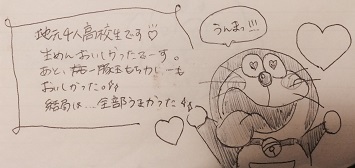 地元千人高校生です♡
生めんおいしかったでーす。
あと、豚玉もちカレーも
おいしかった。
結局は…全部うまかった
うんまっ!!!